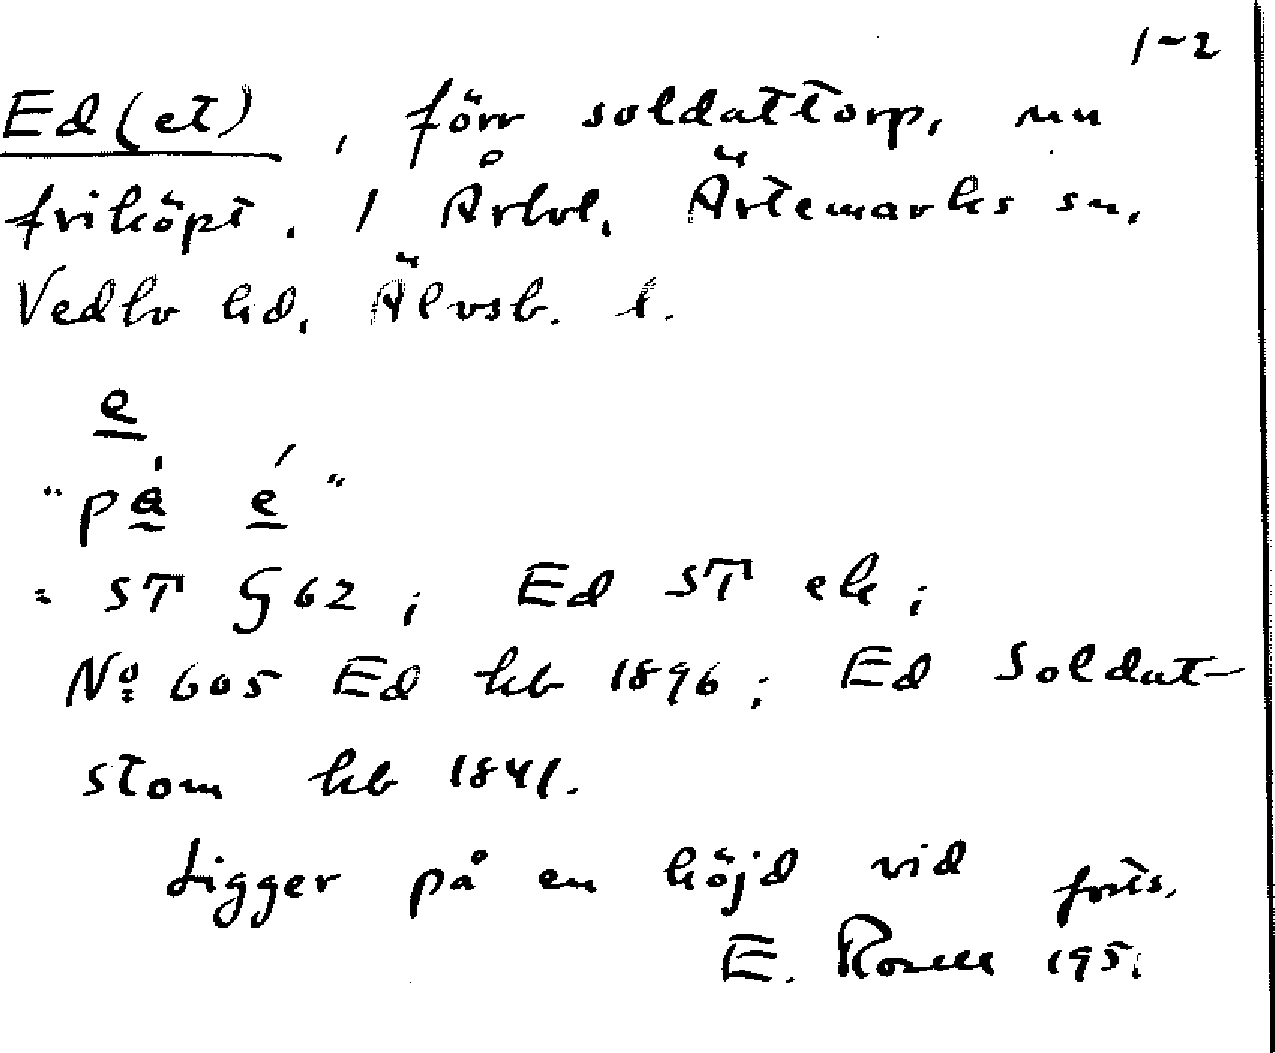 1-2
Ed(et), förr soldattorp, nu
friköpt. 1 Årbol, Ärtemarks sn,
Vedbo hd, Älvsb. l.
e
"på é"
= ST G62; Ed ST ek;
No 605 Ed kb 1896; Ed Soldat-
stom kb 1841.
Ligger på en höjd vid forts.
E. Rosell 1951